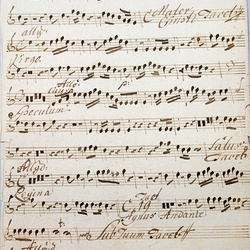 Mater
Christi Tacet
allo
Virgo.
Speculum
Salus
Tacet
Allo.
Regina
Agnus Andante
Sub Tuum Tacet